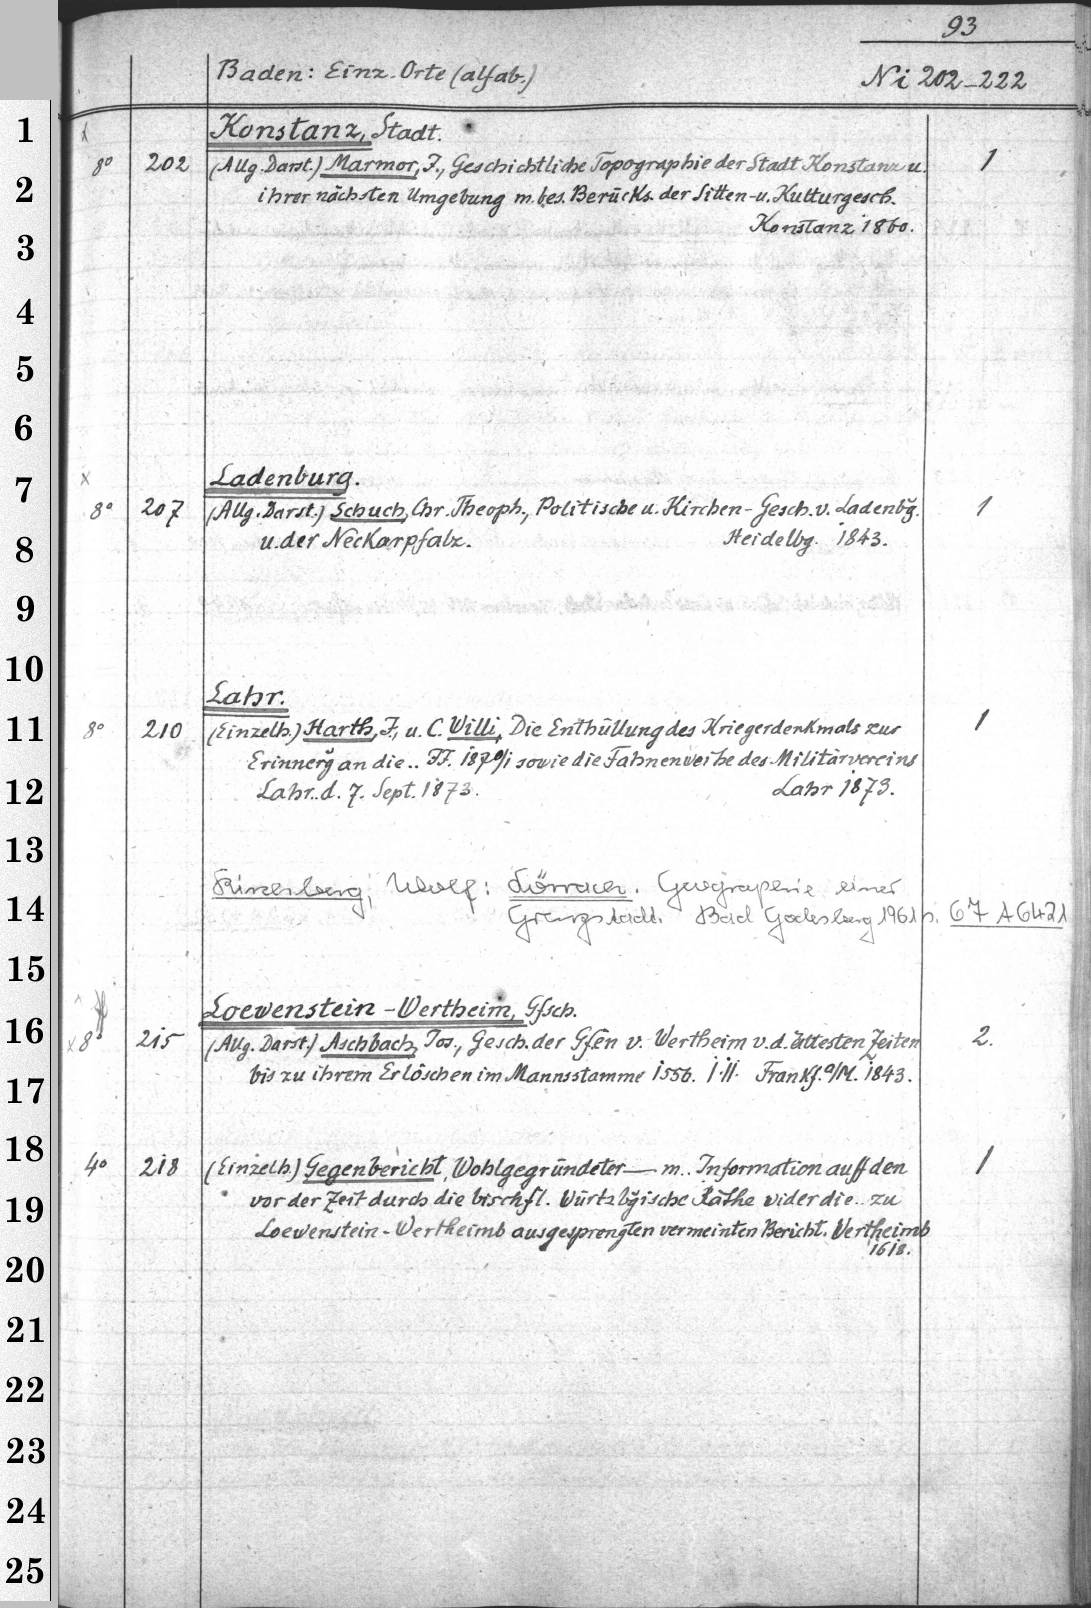 93
Baden: Einz. Orte (alfab.) Ni 202-222
1 Konstanz, Stadt.
8° 202 (Allg. Darst.) Marmor, J., Geschichtliche Topographie der Stadt Konstanz u. 1
2 ihrer nächsten Umgebung m. bes. Berücks. der Sitten- u. Kulturgesch.
3 Konstanz 1860.
4
5
6
7 x Ladenburg.
8° 207 (Allg. Darst.) Schuch, Chr. Theoph., Politische u. Kirchen-Gesch. v. Ladenbg. 1
8 u. der Neckarpfalz. Heidelbg. 1843.
9
10
Lahr.
11 8° 210 (Einzelh.) Harth, F., u. C. Willi, Die Enthüllung des Kriegerdenkmals zur 1
Erinnerg an die.. FF. 1870/1 sowie die Fahnenweihe des Militärvereins
12 Lahr.. d. 7. Sept. 1873. Lahr 1873.
13
Wolf: Lörrach. Geographie einer
14 Grenzstadt. Bad Godesberg 1961. 67 A 6421
15
Loewenstein-Wertheim, Gfsch.
16 x 8° 215 (Allg. Darst.) Aschbach, Jos., Gesch. der Gfen v. Wertheim v. d. ältesten Zeiten 2.
17 bis zu ihrem Erlöschen im Mannsstamme 1556. I.II. Frankf. a/M. 1843.
18 4° 218 (Einzelh.) Gegenbericht, Wohlgegründeter — m.. Information auff den 1
19 vor der Zeit durch die bischfl. Würtzbgische Räthe wider die.. zu
Loewenstein-Wertheimb ausgesprengten vermeinten Bericht. Wertheimb
20 1618.
21
22
23
24
25